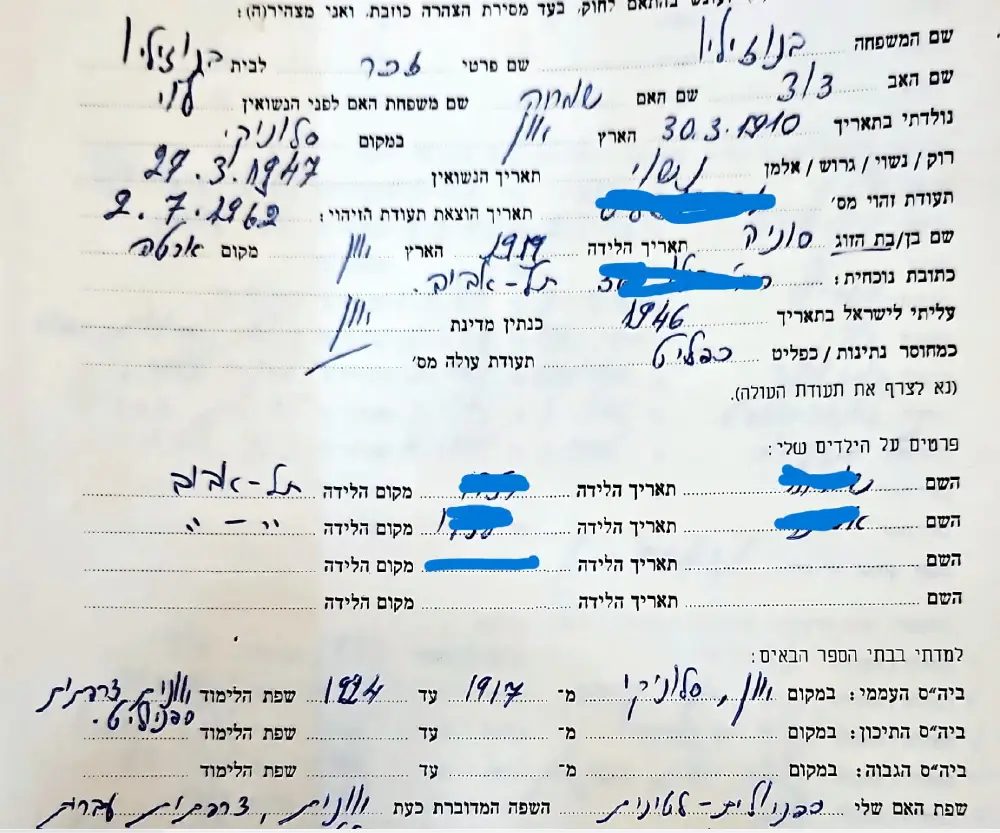 בהתאם לחוק, בעד מסירת הצהרה כוזבת, ואני מצהיר(ה):
שם המשפחה בנוזיליו שם פרטי לבית בנוזיליו
שם האב דוד שם האם שמחה שם משפחת האם לפני הנשואין לוי
נולדתי בתאריך 30.3.1910 הארץ יוון במקום סלוניקי
רוק / נשוי / גרוש / אלמן נשוי תאריך הנשואין 27.3.1947
תעודת זהוי מס׳ תאריך הוצאת תעודת הזיהוי: 2.7.1962
שם בן/בת הזוג סוניה תאריך הלידה 1919 הארץ יוון מקום ארטה
כתובת נוכחית: תל-אביב.
עליתי לישראל בתאריך 1946 כנתין מדינת יוון
כמחוסר נתינות / כפליט כפליט תעודת עולה מס׳ /
(נא לצרף את תעודת העולה).
פרטים על הילדים שלי:
השם תאריך הלידה מקום הלידה תל-אביב
השם תאריך הלידה מקום הלידה " - "
השם תאריך הלידה מקום הלידה
השם תאריך הלידה מקום הלידה
למדתי בבתי הספר הבאים:
ביה״ס העממי: במקום יוון, סלוניקי מ־ 1917 עד 1924 שפת הלימוד יוונית צרפתית
ביה״ס התיכון: במקום מ־ עד שפת הלימוד
ביה״ס הגבוה: במקום מ־ עד שפת הלימוד
שפת האם שלי לטינית השפה המדוברת כעת יוונית, צרפתית עברית